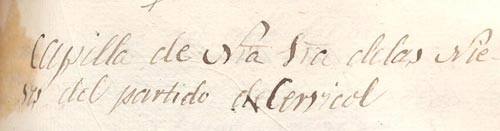 Capilla de Nra Sra delas Nie-
ves del partido de Cervicol